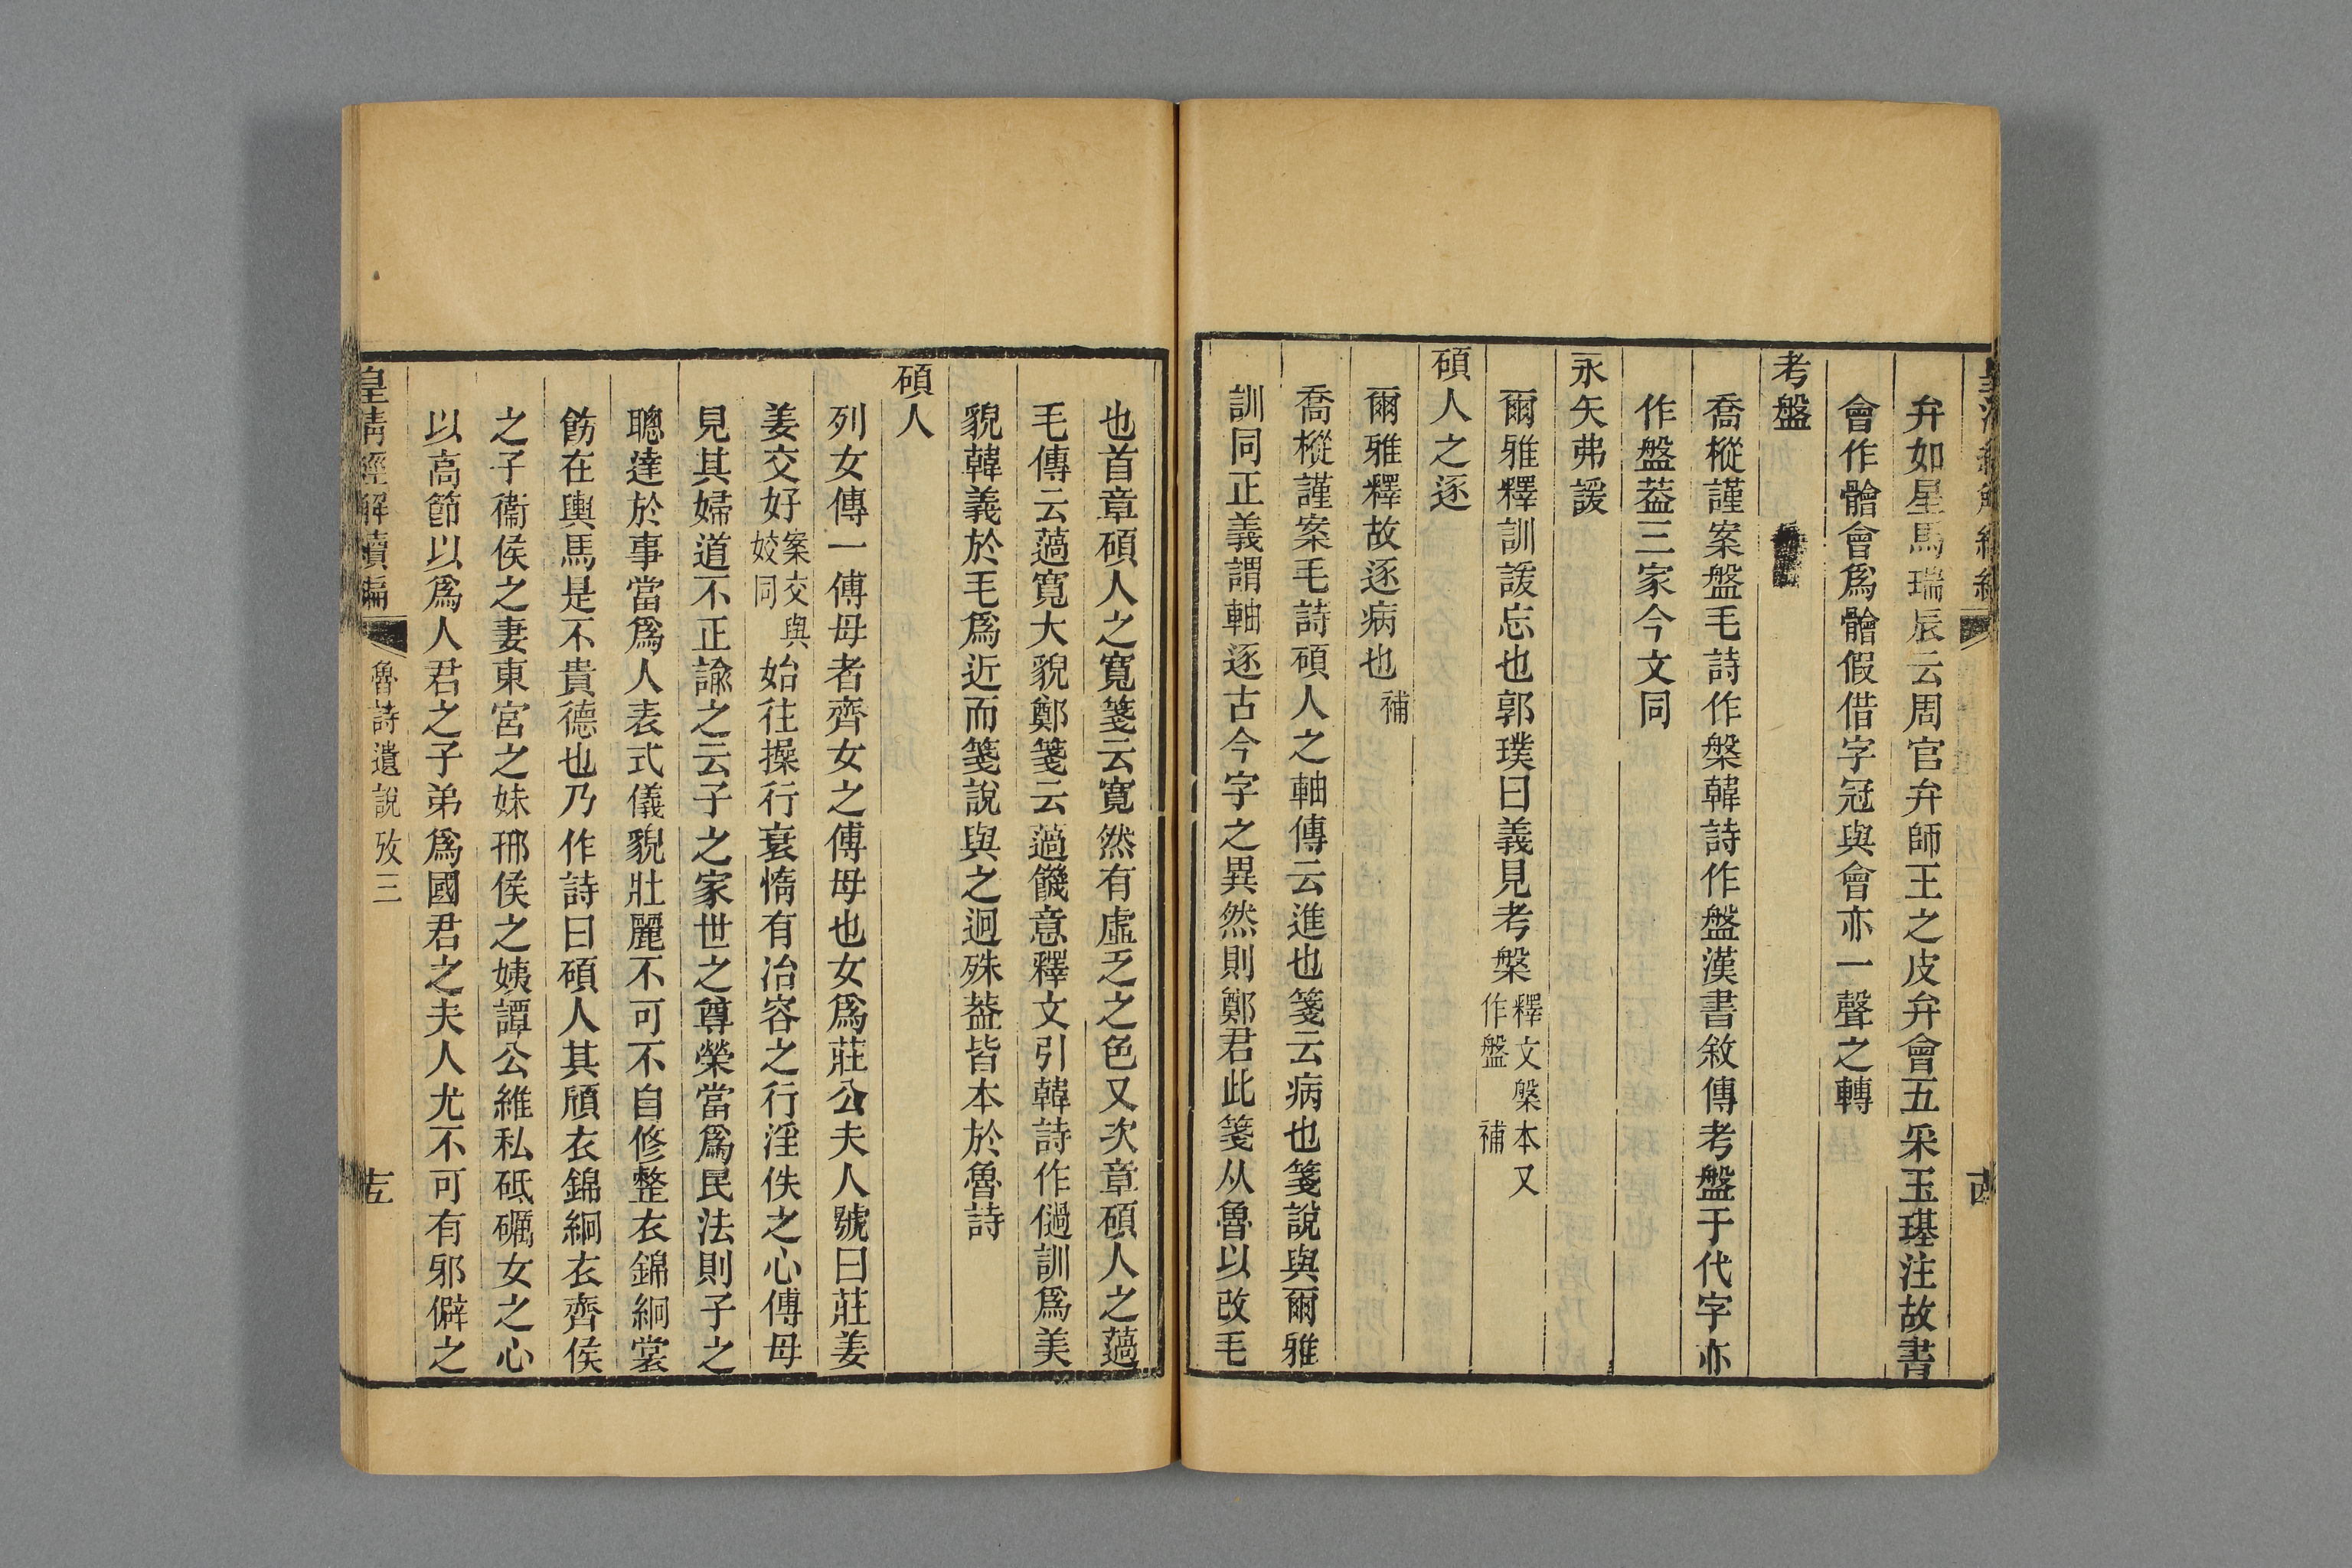 弁如星馬瑞辰云周官弁師王之皮弁會五采玉璂注故書
會作䯤會爲䯤假借字冠與會亦一聲之轉
考盤
喬樅謹案盤毛詩作槃韓詩作盤漢書敘傳考盤于代字亦
作盤葢三家今文同
永矢弗諼
爾雅釋訓諼忘也郭璞曰義見考槃釋文槃本又作盤 補
碩人之逐
爾雅釋故逐病也補
喬樅謹案毛詩碩人之軸傳云進也箋云病也箋說與爾雅
訓同正義謂軸逐古今字之異然則鄭君此箋从魯以改毛
也首章碩人之寬箋云寬然有虛乏之色又次章碩人之薖
毛傳云薖寬大貌鄭箋云薖饑意釋文引韓詩作㗻訓爲美
貌韓義於毛爲近而箋說與之迥殊葢皆本於魯詩
碩人
列女傳一傅母者齊女之傅母也女爲莊公夫人號曰莊姜
姜交好案交與姣同始往操行衰惰有冶容之行淫佚之心傅母
見其婦道不正諭之云子之家世之尊榮當爲民法則子之
聰達於事當爲人表式儀貌壯麗不可不自修整衣錦絅裳
飭在輿馬是不貴德也乃作詩曰碩人其頎衣錦絅衣齊侯
之子衞侯之妻東宮之妹邢侯之姨譚公維私砥礪女之心
以高節以爲人君之子弟爲國君之夫人尤不可有邪僻之
皇清經解續編 魯詩遺說攷三